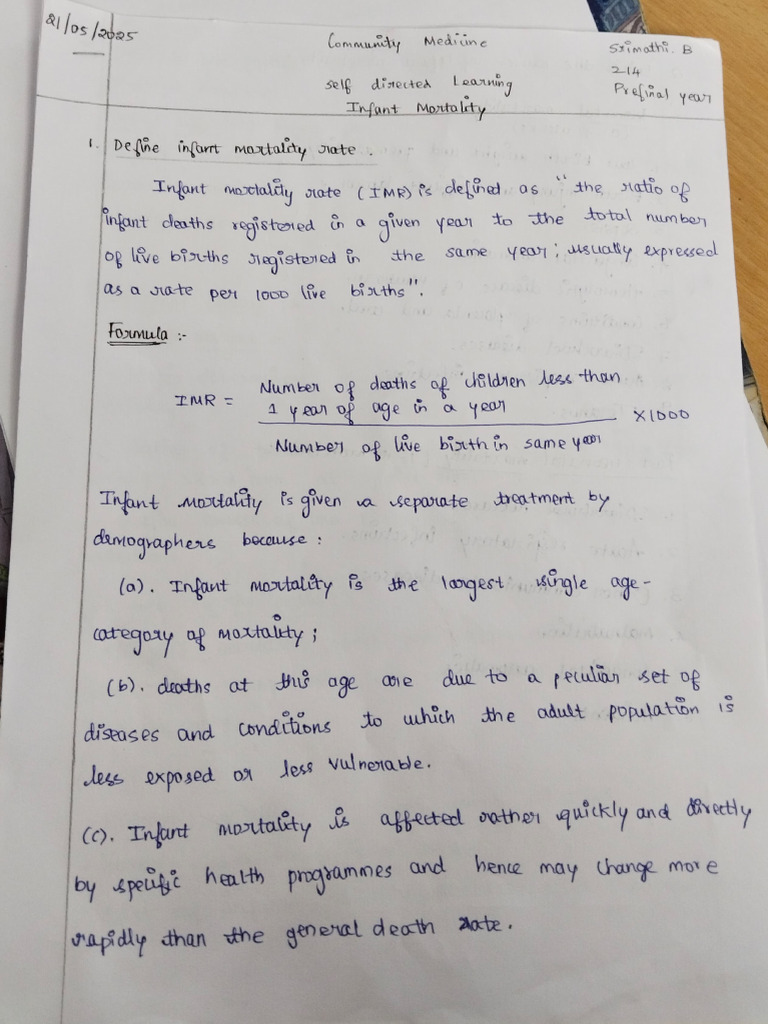 21/05/2025
Community Medicine
Srimathi. B
214
Prefinal year
self directed Learning
Infant Mortality
1. Define infant mortality rate.
Infant mortality rate (IMR) is defined as "the ratio of
infant deaths registered in a given year to the total number
of live births registered in the same year; usually expressed
as a rate per 1000 live births".
Formula :-
Number of deaths of children less than
IMR = 1 year of age in a year X1000
Number of live birth in same year
Infant mortality is given a separate treatment by
demographers because :
(a). Infant mortality is the largest single age-
category of mortality;
(b). deaths at this age are due to a peculiar set of
diseases and conditions to which the adult population is
less exposed or less vulnerable.
(c). Infant mortality is affected rather quickly and directly
by specific health programmes and hence may change more
rapidly than the general death rate.